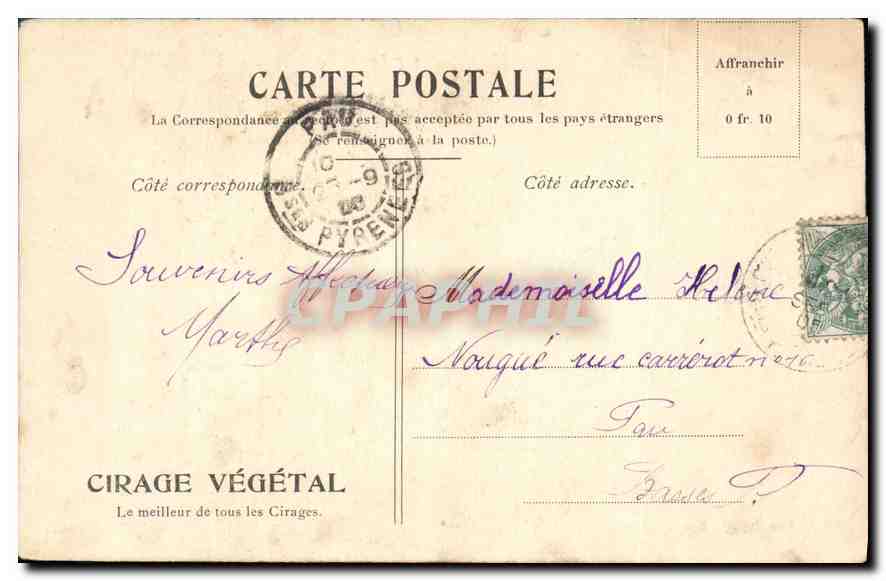 CARTE POSTALE
La Correspondance au recto n'est pas acceptée par tous les pays étrangers
(Se renseigner à la poste.)
Affranchir
à
0 fr. 10
PAU
BSES PYRENEES
Côté correspondance.
Côté adresse.
Souvenirs
Marthe
Mademoiselle Helène
Nougué rue carrérot no 10
Pau
Basses P.
CPAPHIL
CIRAGE VÉGÉTAL
Le meilleur de tous les Cirages.